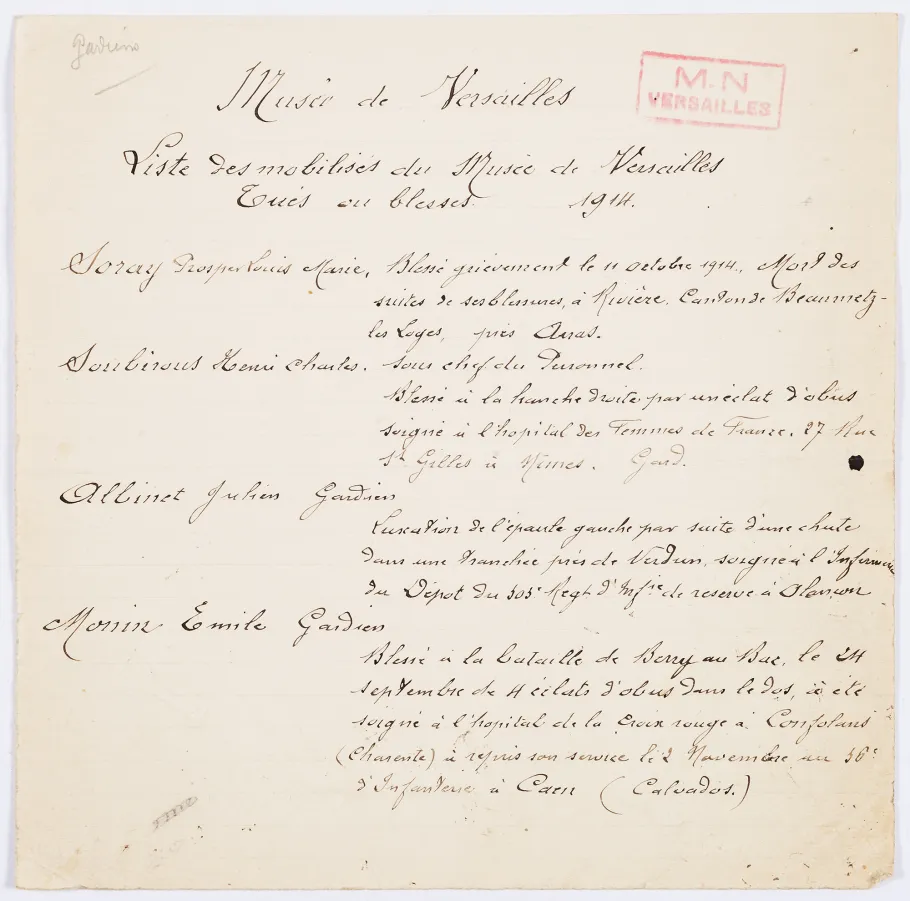 Gardiens
M.N
VERSAILLES
Musée de Versailles
Liste des mobilisés du Musée de Versailles
Tués ou blessés 1914.
Soray Prosper Louis Marie, Blessé grièvement le 11 octobre 1914., Mort des
suites de ses blessures, à Rivière, Canton de Beaumetz-
les Loges, près Arras.
Soubirous Henri Charles. Sous chef du Personnel.
Blessé à la hanche droite par un éclat d'obus
soigné à l'hopital des Femmes de France. 27 Rue
St Gilles à Nimes. Gard.
Albinet Julien Gardien
Luxation de l'épaule gauche par suite d'une chute
dans une tranchée près de Verdun, soigné à l'Infirmerie
du Dépot du 303e Regt d'Infie de reserve à Alençon
Monin Emile Gardien
Blessé à la bataille de Berry au Bac, le 24
septembre de 4 éclats d'obus dans le dos, à été
soigné à l'hopital de la croix rouge à Confolans
(Charente) à repris son service le 2 Novembre au 36e
d'Infanterie à Caen (Calvados.)